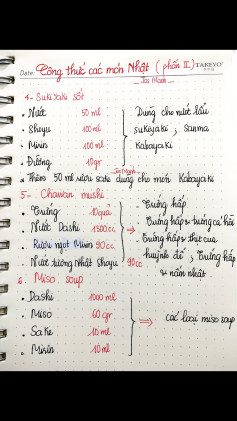 TAKEYO
Date:
Công thức các món Nhật (phần II)
Jas Mạnh
4- Sukiyaki sốt
• Nước 50 ml
• Shoyu 100 ml
• Mirin 100 ml
• Đường 10gr
Dùng cho nước lẩu
sukiyaki; Sanma
Kabayaki
Jas Mạnh
* Thêm 50 ml rượu sake dùng cho món Kabayaki
5- Chawan mushi.
• Trứng 10 quả
• Nước Dashi 1500 cc
• Rượu ngọt Mirin 90 cc
• Nước tương Nhật Shoyu 90 cc
- Trứng hấp
- Trứng hấp trứng cá hồi
- Trứng hấp thịt cua
huỳnh đế; Trứng hấp
nấm nhật
6- Miso soup
• Dashi 1000 ml
• Miso 60 gr
• Sake 10 ml
• Mirin 10 ml
các loại miso soup